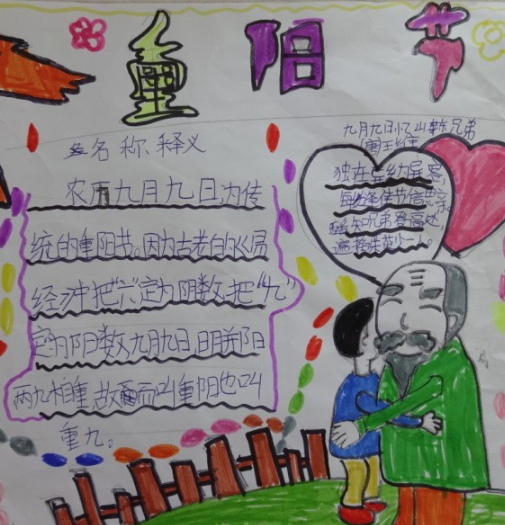 重阳节
名称释义
农历九月九日,为传
统的重阳节。因为古老的《易
经》中把“六”定为阴数,把“九”
定为阳数,九月九日,日月并阳
两九相重,故而叫重阳,也叫
重九。
九月九日忆山东兄弟
(唐)王维
独在异乡为异客
每逢佳节倍思亲
遥知兄弟登高处
遍插茱萸少一人